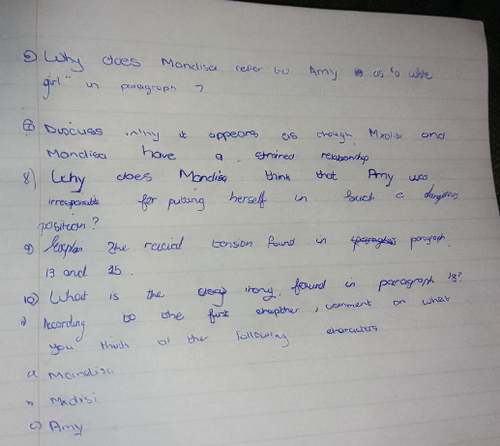 5) Why does Mandisa refer to Amy as "a white
girl" in paragraph 7
Discuss why it appears as though Mxolisi and
Mandisa have a strained relationship
8) Why does Mandisa think that Amy was
irresponsible for putting herself in such a dangerous
position?
9) Explain the racial tension found in paragraph
13 and 15.
10) What is the irony found in paragraph 13?
According to the first chapther, comment on what
you think of the following characters
a Mandisa
b Mxolisi
c) Amy